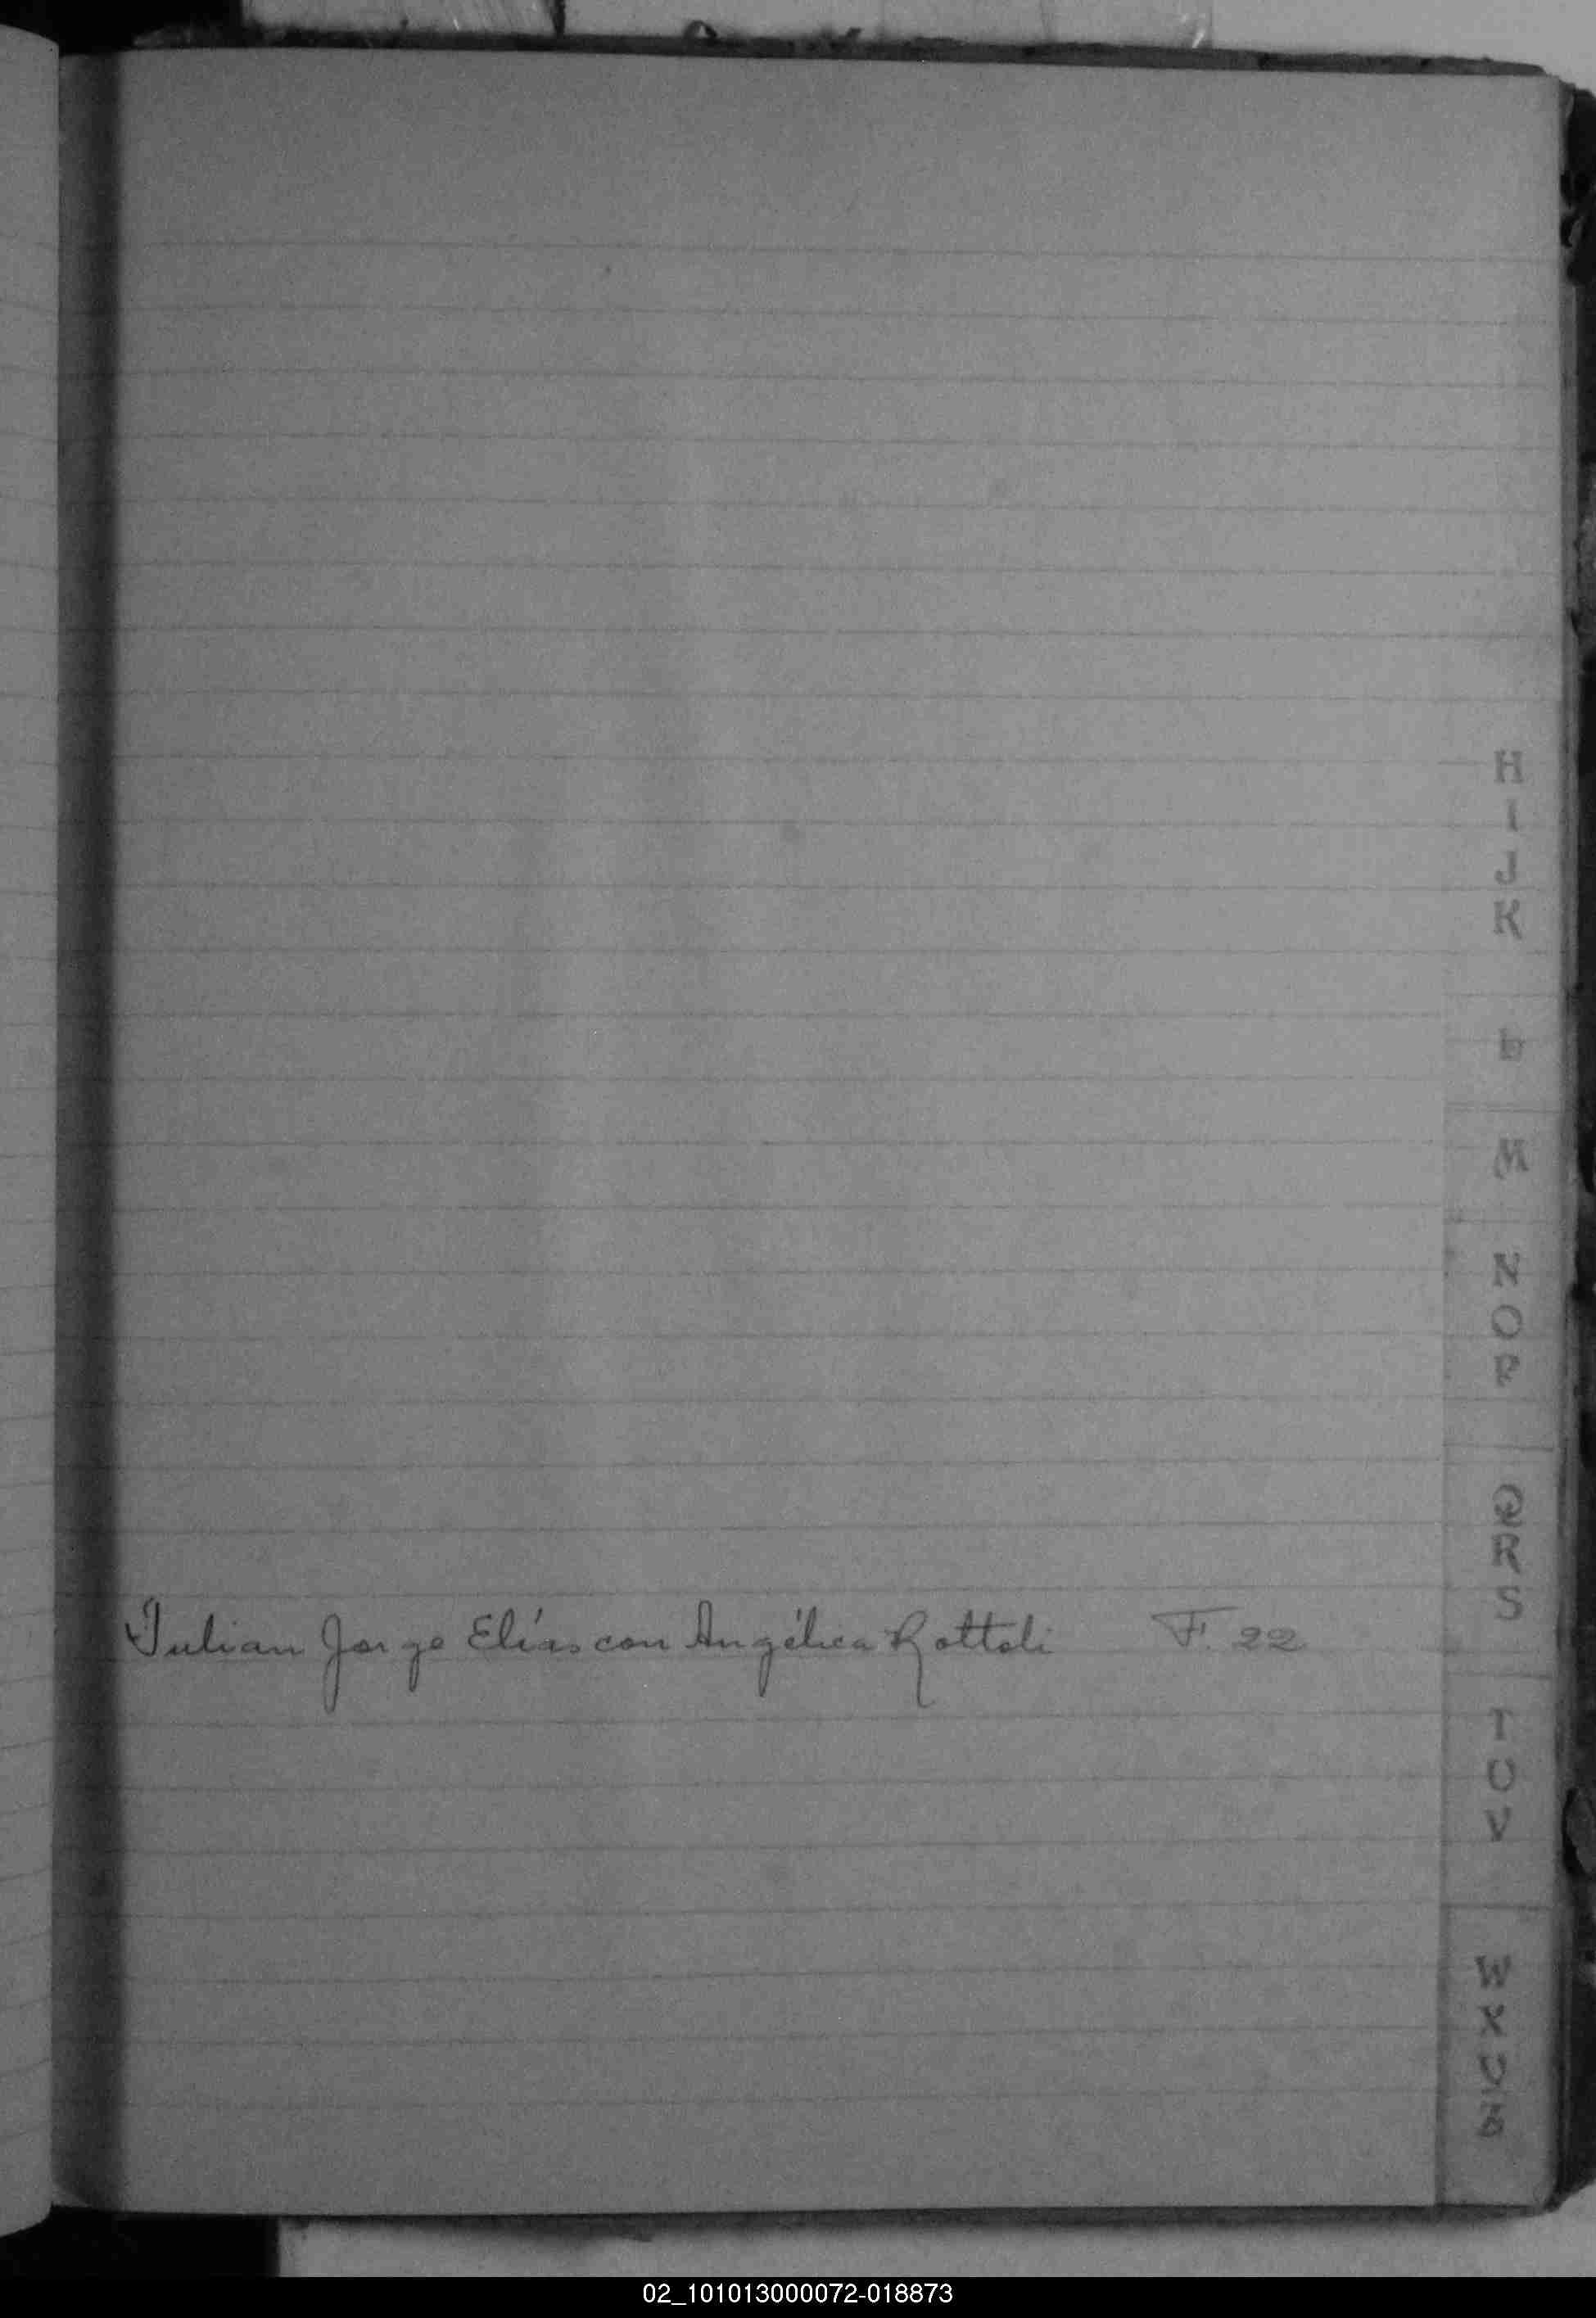 H
I
J
K
L
M
N
O
P
Q
R
S
Julian Jorge Elías con Angélica Rottoli F. 22
T
U
V
W
X
Y
Z
02_101013000072-018873